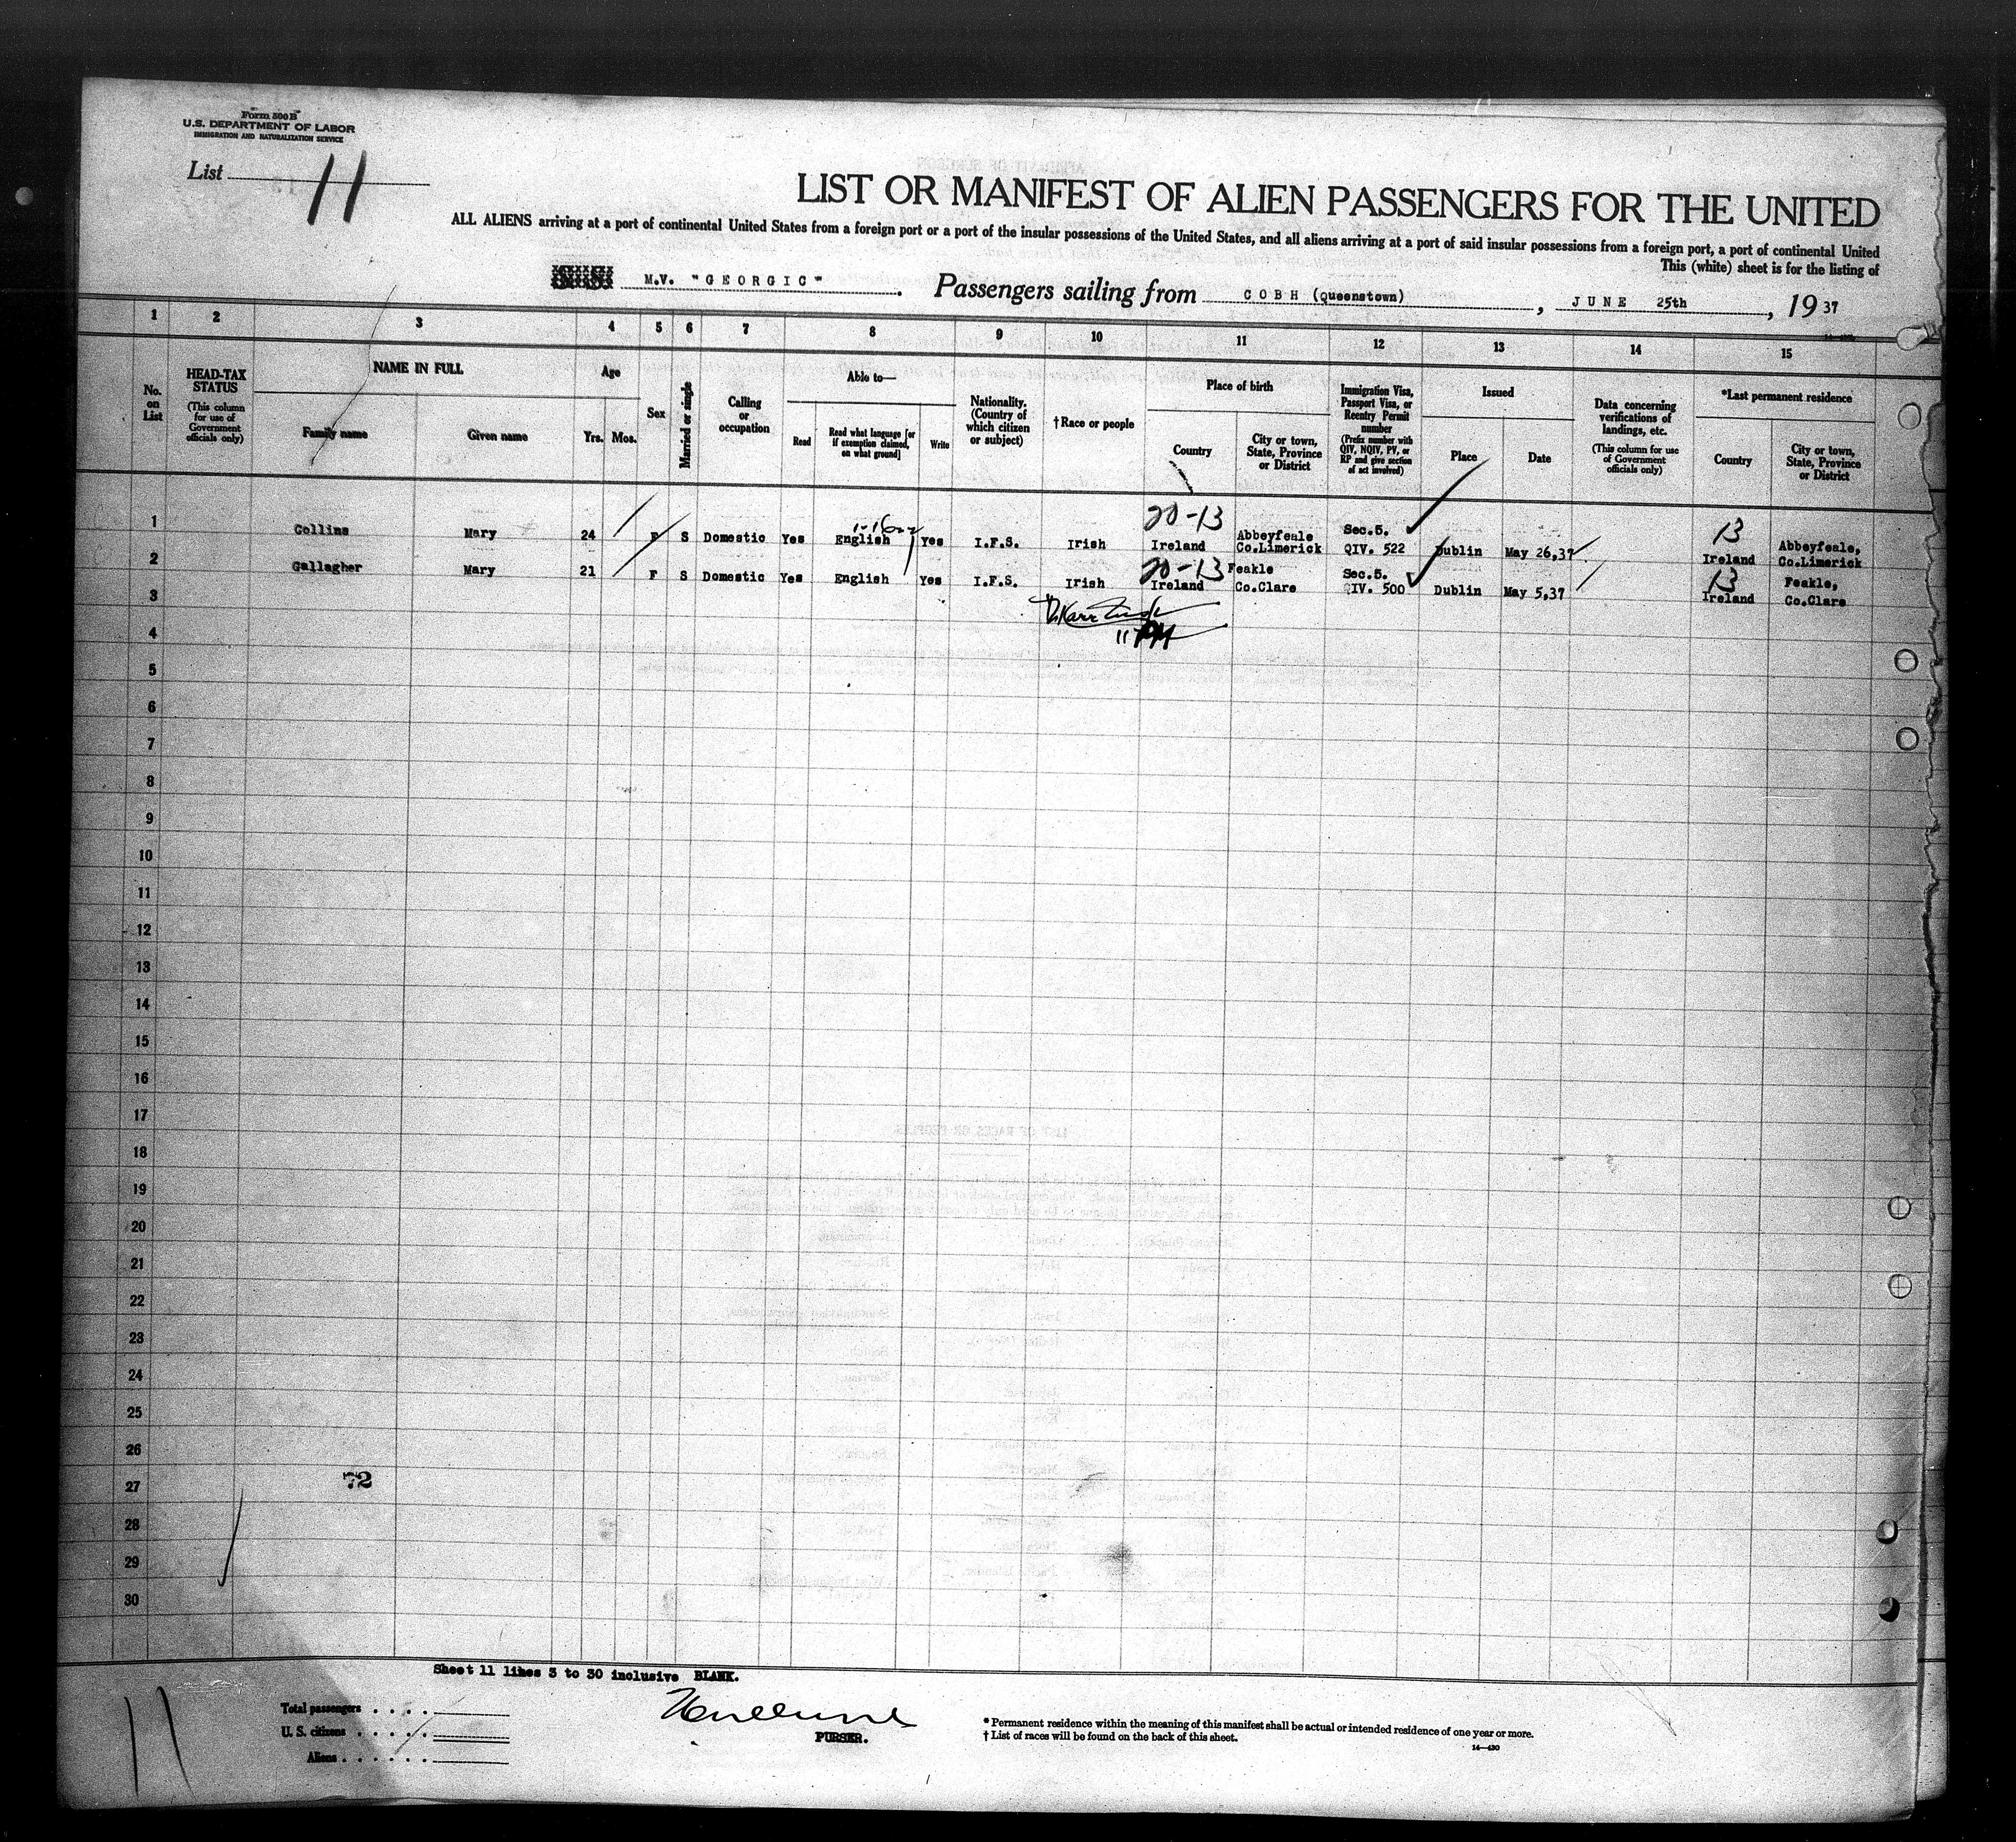 Form 500 B
U.S. DEPARTMENT OF LABOR
IMMIGRATION AND NATURALIZATION SERVICE
List 11
LIST OR MANIFEST OF ALIEN PASSENGERS FOR THE UNITED
ALL ALIENS arriving at a port of continental United States from a foreign port or a port of the insular possessions of the United States, and all aliens arriving at a port of said insular possessions from a foreign port, a port of continental United
This (white) sheet is for the listing of
M.V. "GEORGIC". Passengers sailing from COBH (Queenstown), JUNE 25th, 1937
1 2 3 4 5 6 7 8 9 10 11 12 13 14 15
No. on List
HEAD-TAX STATUS
(This column for use of Government officials only)
NAME IN FULL
Family name
Given name
Age
Yrs. Mos.
Sex
Married or single
Calling or occupation
Able to—
Read
Read what language [or if exemption claimed, on what ground]
Write
Nationality. (Country of which citizen or subject)
†Race or people
Place of birth
Country
City or town, State, Province or District
Immigration Visa, Passport Visa, or Reentry Permit number
(Prefix number with QIV, NQIV, PV, or RP and give section of act involved)
Issued
Place
Date
Data concerning verifications of landings, etc.
(This column for use of Government officials only)
*Last permanent residence
Country
City or town, State, Province or District
20-13 13
1 Collins Mary 24 F S Domestic Yes English Yes I.F.S. Irish Ireland Abbeyfeale Co.Limerick Sec.5. QIV. 522 Dublin May 26,37 Ireland Abbeyfeale, Co.Limerick
20-13 13
2 Gallagher Mary 21 F S Domestic Yes English Yes I.F.S. Irish Ireland Feakle Co.Clare Sec.5. QIV. 500 Dublin May 5,37 Ireland Feakle, Co.Clare
3
4
5
6
7
8
9
10
11
12
13
14
15
16
17
18
19
20
21
22
23
24
25
26
72
27
28
29
30
Sheet 11 lines 3 to 30 inclusive BLANK.
11
Total passengers
U. S. citizens
Aliens
PURSER.
* Permanent residence within the meaning of this manifest shall be actual or intended residence of one year or more.
† List of races will be found on the back of this sheet.
14—430